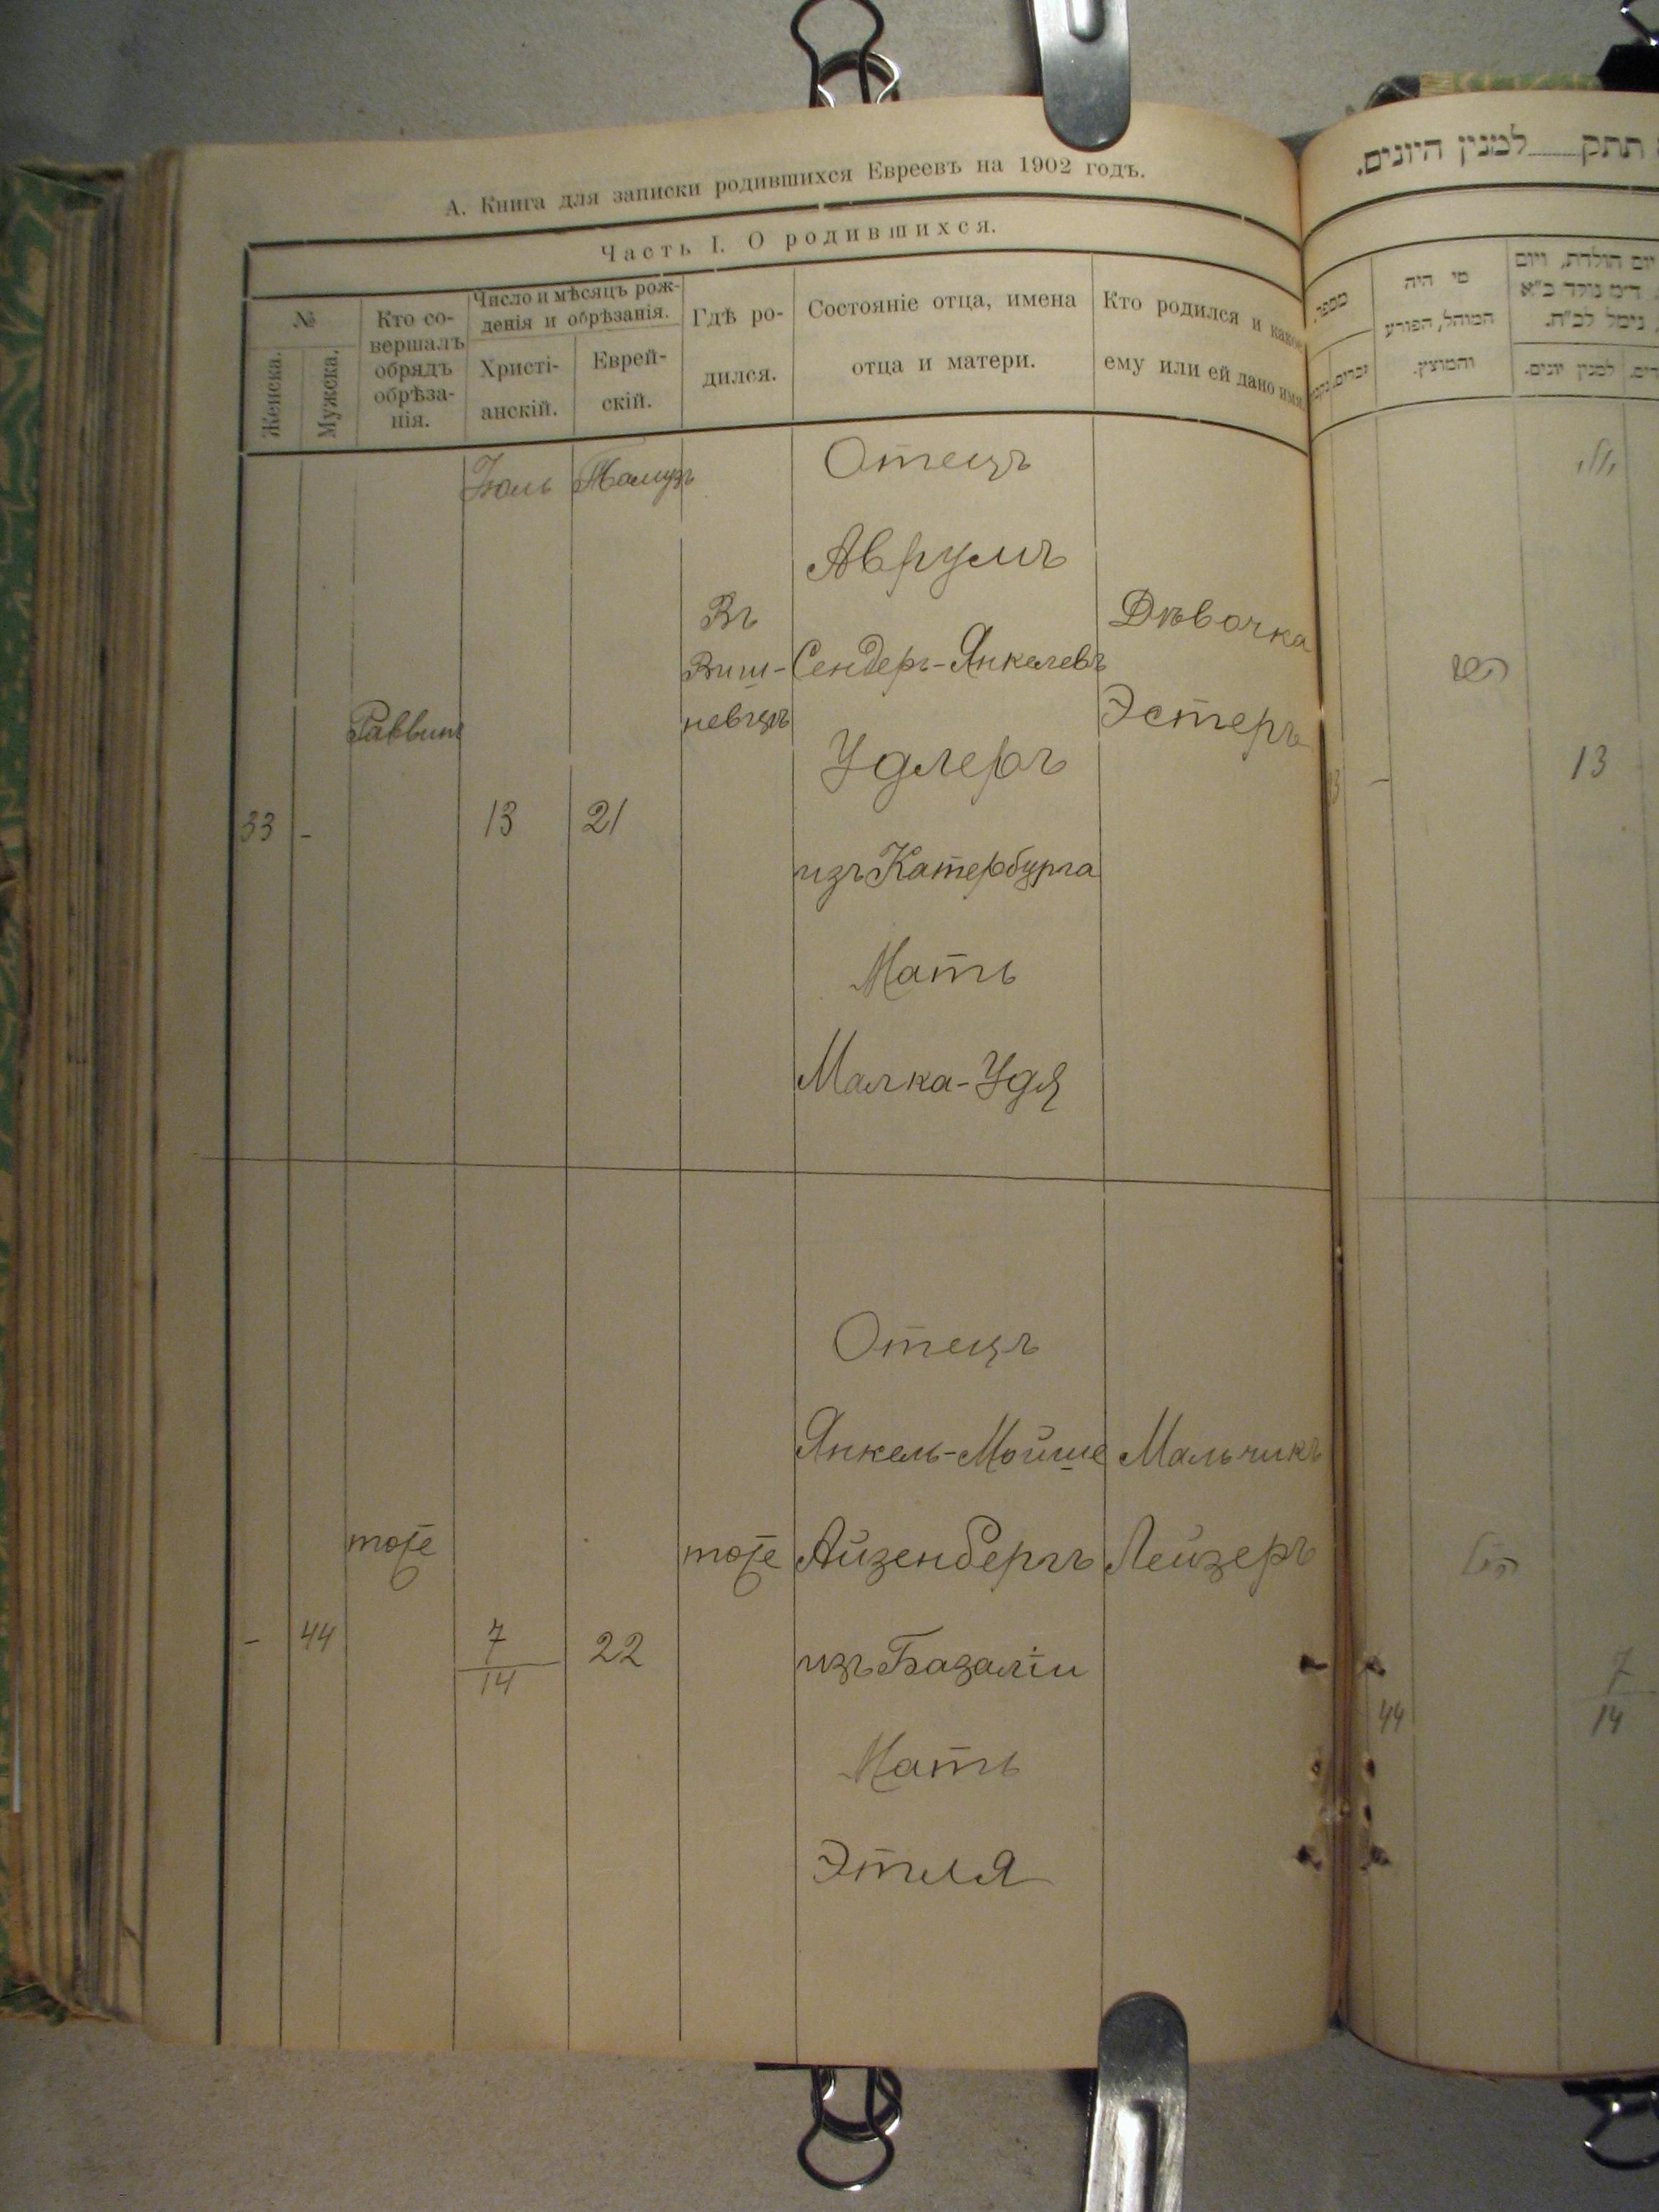 А. Книга для записки родившихся Евреевъ на 1902 годъ.
Часть I. О родившихся.
№
Женска.
Мужска.
Кто со-
вершалъ
обрядъ
обрѣза-
нія.
Число и мѣсяцъ рож-
денія и обрѣзанія.
Христі-
анскій.
Еврей-
скій.
Гдѣ ро-
дился.
Состояніе отца, имена
отца и матери.
Кто родился и какое
ему или ей дано имя.
Іюль
Тамузъ
33
-
Раввинъ
13
21
Въ
Виш-
невцѣ
Отецъ
Аврумъ
Сендеръ-Янкелевъ
Удлеръ
изъ Катербурга
Мать
Малка-Удя
Дѣвочка
Эстеръ
-
44
тоже
7
14
22
тоже
Отецъ
Янкель-Мойше
Айзенбергъ
изъ Базаліи
Мать
Этля
Мальчикъ
Лейзеръ
תתק למנין היונים.
מספר.
זכרים.
מי היה
המוהל, הפורע
והמוצץ.
יום הולדת, ויום
למנין יונים.
-
13
44
7
14